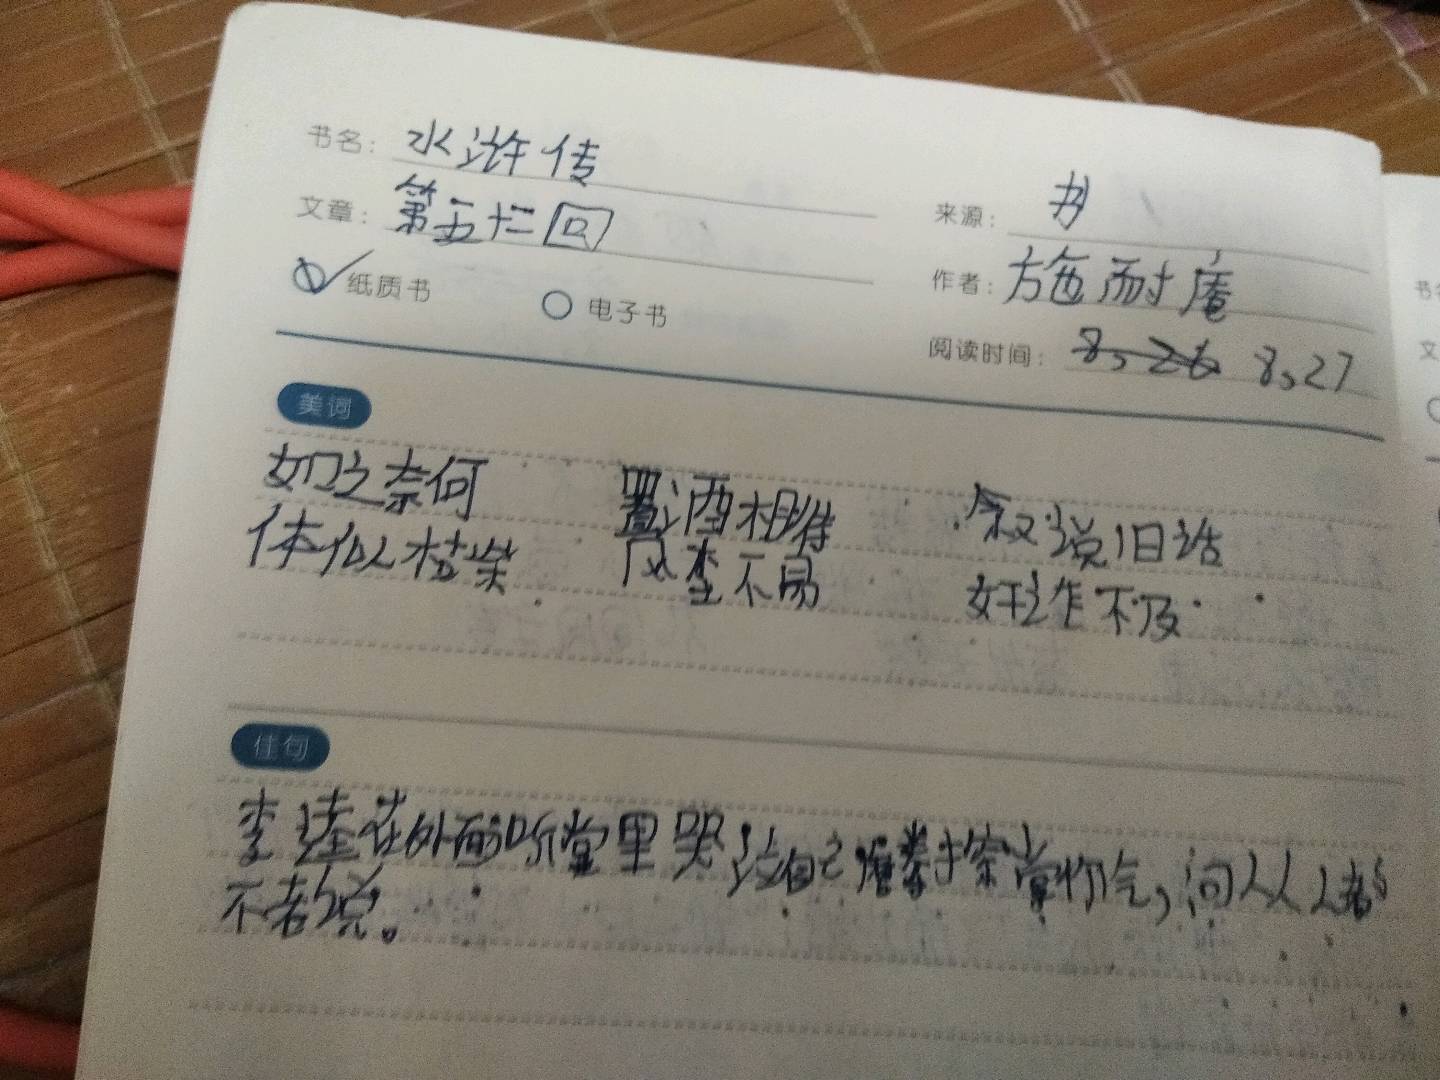 书名: 水浒传
来源: 书
文章: 第五十二回
作者: 施耐庵
纸质书 电子书
阅读时间: 8,26 8,27
美词
如之奈何 置酒相待 叙说旧话
体似枯柴 风 不 迭 不及
佳句
李逵在外面听堂里哭 自己 拳擦掌 气,问从人
不肯说。
书名
文